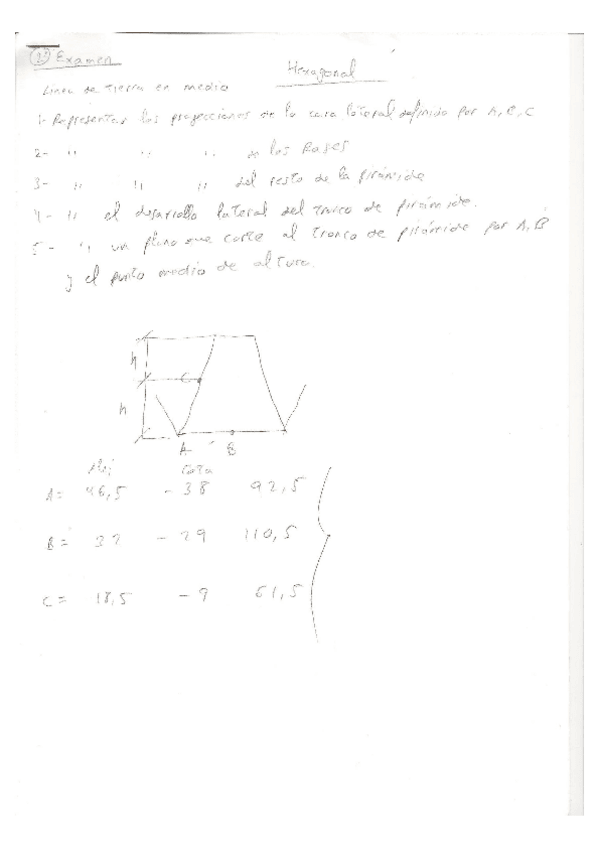 2º Examen
Hexagonal
Linea de Tierra en medio
1- Representar las proyecciones de la cara lateral definida por A, B, C
2- " " " de las Bases
3- " " " del resto de la pirámide
4- " el desarrollo lateral del tronco de pirámide.
5- " un plano que corte al tronco de pirámide por A, B
y el punto medio de altura.
h
C
h
A B
Cota
A= 46,5 - 38 92,5
B= 32 - 29 110,5
C= 18,5 - 9 61,5